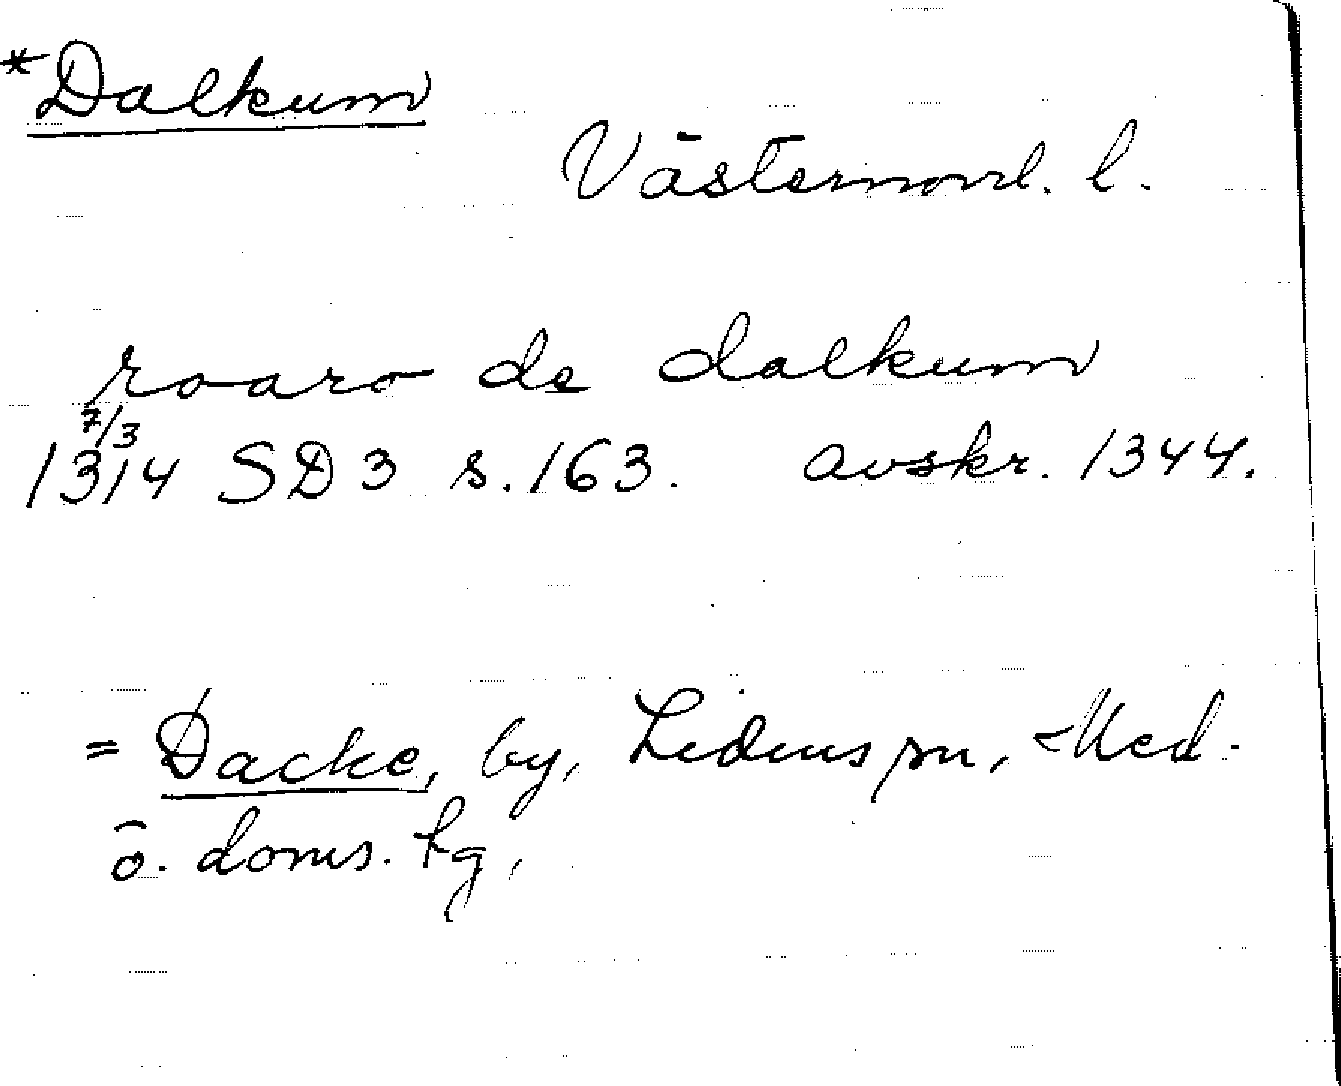 *Dalkum
Västernorrl. l.
roaro de dalkum
7/3
1314 SD 3 s. 163. avskr. 1344.
= Dacke, by, Lidens sn, Med.
ö. doms. tg,